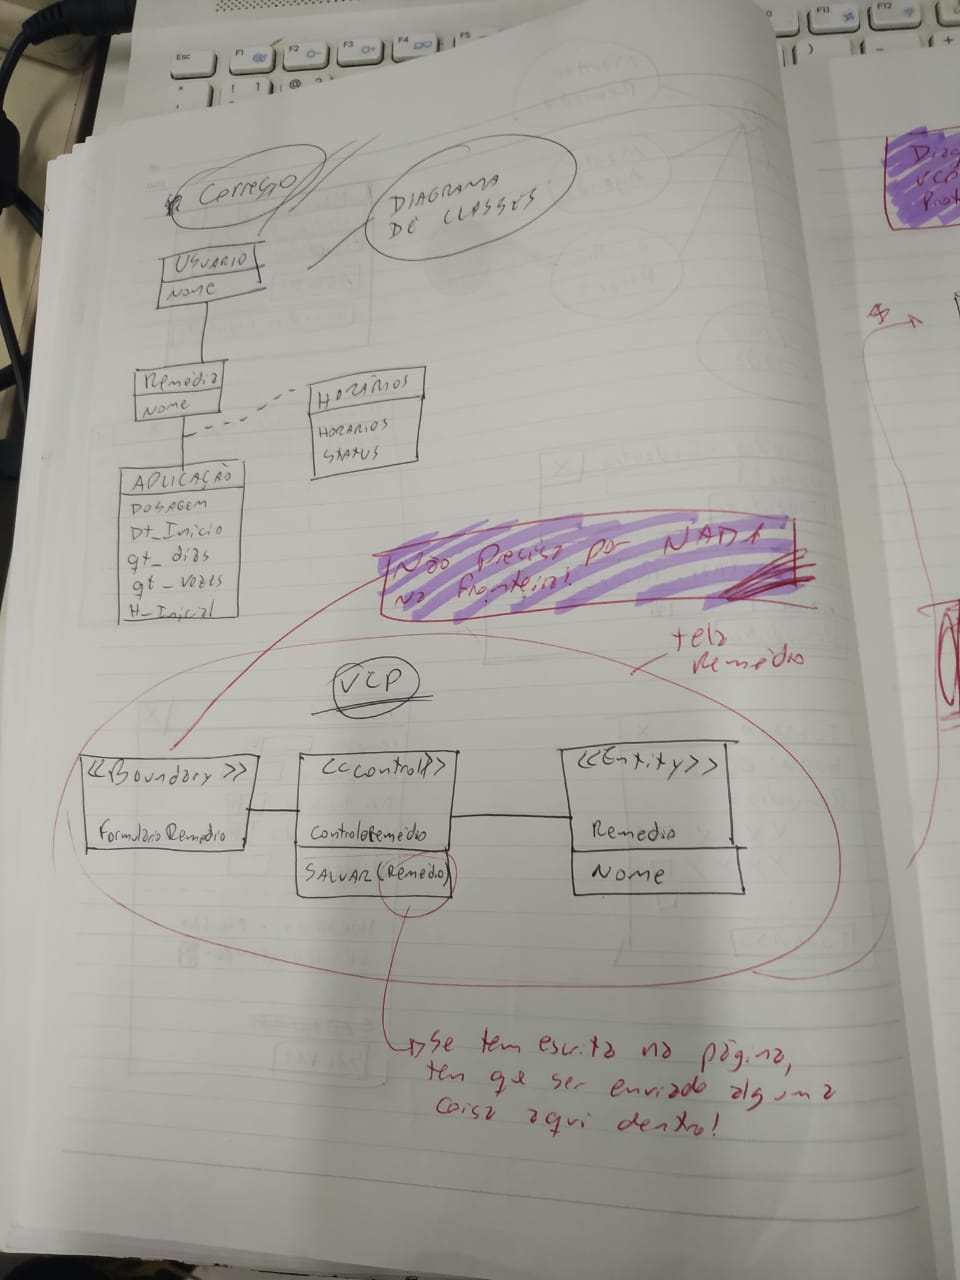 Esc
F1
F2
F3
F4
F5
F11
F12
Correção
DIAGRAMA
DE CLASSES
USUARIO
Nome
Remédio
Nome
HORÁRIOS
HORARIOS
STATUS
APLICAÇÃO
DOSAGEM
Dt_Inicio
qt_dias
qt_vezes
H_Inicial
Não Precisa por NADA
na Fronteira!
tela
Remédio
VCP
<<Boundary>>
Formulário Remedio
<<control>>
ControleRemédio
SALVAR(Remédio)
<<Entity>>
Remedio
Nome
Se tem escrita na página,
tem que ser enviado alguma
coisa aqui dentro!
VCP